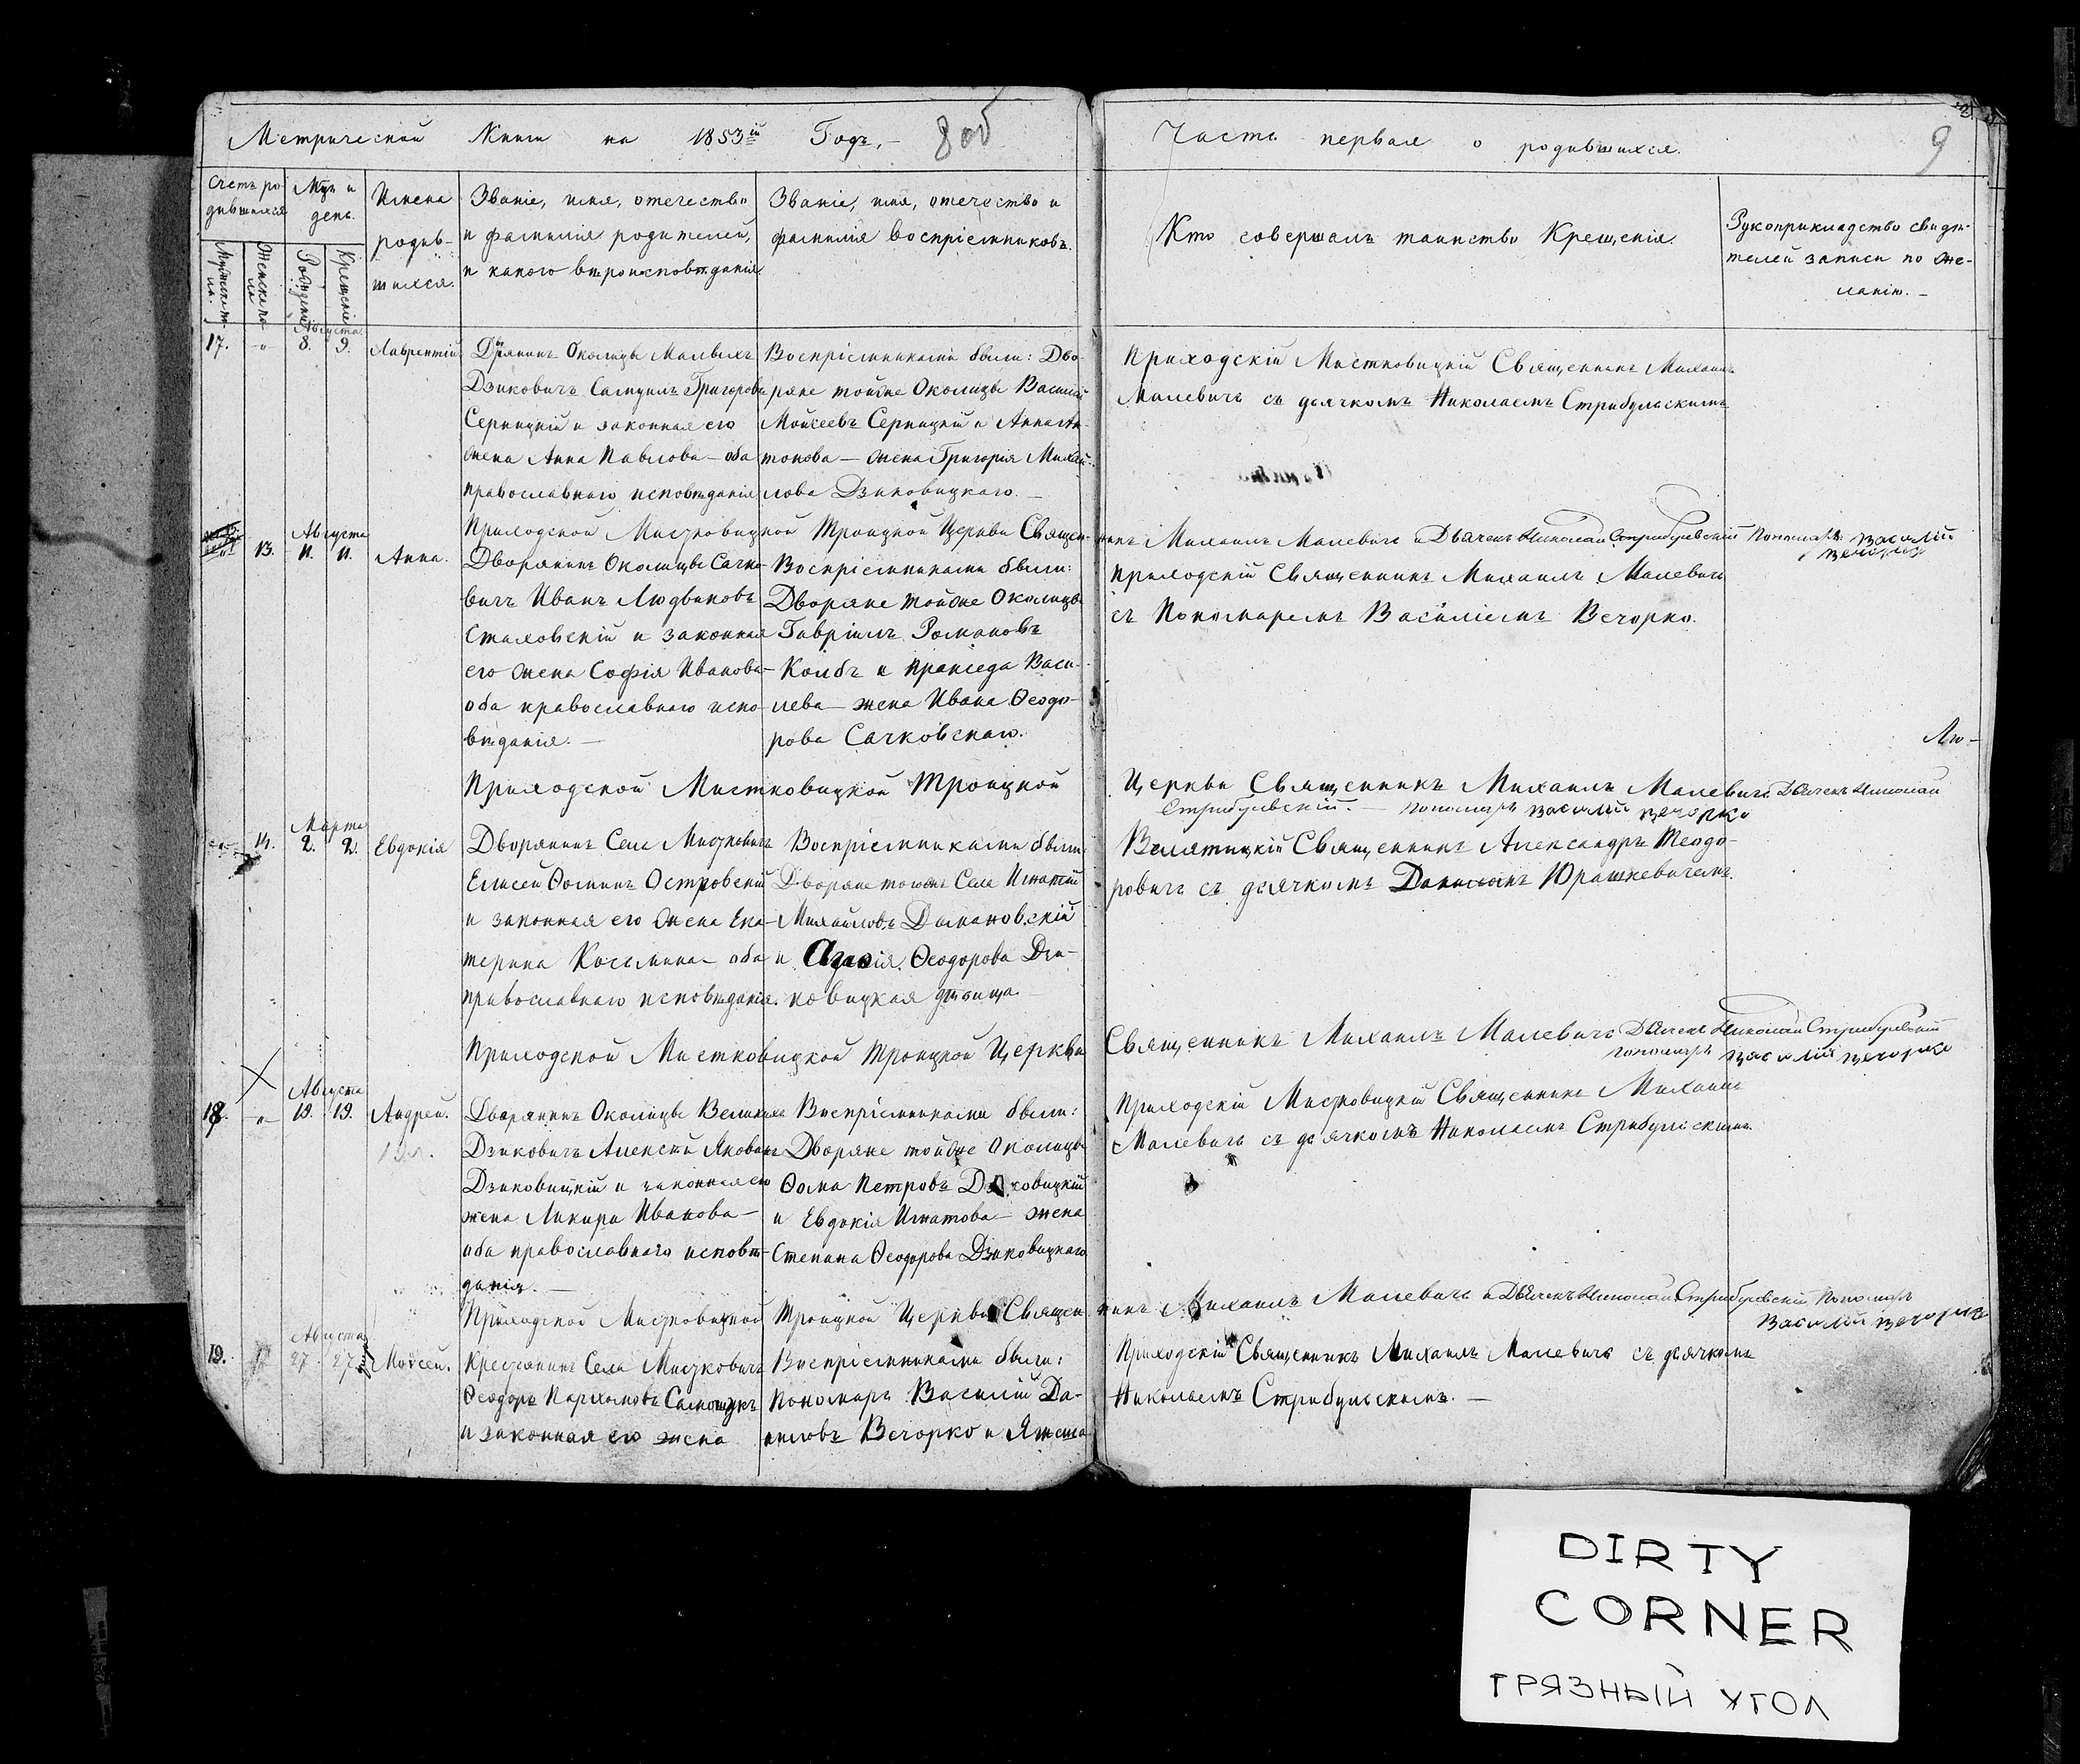 Метрической Книги на 1853й Годъ,– 8об
Счетъ ро-
дившихся
Мцъ и
день.
Имена
родив-
шихся.
Званіе, имя, отечество
и фамилія родителей,
и какого вѣроисповѣданія
Званіе, имя, отечество и
фамилія Воспріемниковъ.
Рожденія
Крещенія
17. " Августа 8. 9. Лаврентій
Околицы Малыхъ
Дзиковичъ Самуилъ Григоровъ
Серницкій и законная его
жена Анна Павлова – оба
православнаго исповѣданія
Воспріемниками были: Дво-
ряне тойже Околицы Василій
Моисеевъ Серницкій и Анна Ан-
тонова – жена Григорія Михай-
лова Дзиковицкаго. –
Приходской Мистковицкой Троицкой Церкви Священ-
13. Августа 11. 11. Анна.
Дворянинъ Околицы Сачко-
вичъ Иванъ Людвиковъ
Стаховскій и законная
его жена Софія Иванова –
оба православнаго испо-
вѣданія. –
Воспріемниками были:
Дворяне тойже Околицы
Гавріилъ Романовъ
Колбъ и Праксида Васи-
лева – жена Ивана Ѳеодо-
рова Сачковскаго.
Приходской Мистковицкой Троицкой
14. Марта 2. 2. Евдокія
Дворянинъ Села Мистковичъ
Елисей Ѳоминъ Островскій
и законная его жена Ека-
терина Косьмина – оба
православнаго исповѣданія.
Воспріемниками были:
Дворяне тогоже Села Игнатій
Михайловъ Домановскій
и Ѳеодорова Дзи-
ковицкая дѣвица. –
Приходской Мистковицкой Троицкой Церкви
18. " Августа 19. 19. Андрей.
Дворянинъ Околицы Великихъ
Дзиковичъ Алексѣй Яковъ
Дзиковицкій и законная его
жена Иванова –
оба православнаго исповѣ-
данія. –
Воспріемниками были:
Дворяне тойже Околицы
Ѳома Петровъ Дзиковицкій
и Евдокія Игнатова – жена
Степана Ѳеодорова Дзиковицкаго
Приходской Мистковицкой Троицкой Церкви Священ-
19. Августа 27. 27. Моисей.
Крестьянинъ Села Мистковичъ
Ѳеодоръ Пархомовъ
и законная его жена
Воспріемниками были:
Пономарь Василій Да-
ниловъ Вечорко и
Часть первая о родившихся. 9
Кто совершалъ таинство Крещенія.
Рукоприкладство свидѣ-
телей записи по же-
ланію. –
Приходскій Мистковицкій Священникъ Михаилъ
Малевичъ съ дьячкомъ Николаемъ Стрибульскимъ
никъ Михаилъ Малевичъ и Дьячекъ Николай Стрибульскій Пономарь Василій
Вечорко
Приходскій Священникъ Михаилъ Малевичъ
съ Пономаремъ Василіемъ Вечорко.
Церкви Священникъ Михаилъ Малевичъ Дьячекъ Николай
Стрибульскій – Пономарь Василій Вечорко
Священникъ Александръ Ѳеодо-
ровичъ съ дьячкомъ Юрашкевичемъ.
Священникъ Михаилъ Малевичъ Дьячекъ Николай Стрибульскій
Пономарь Василій Вечорко
Приходскій Мистковицкій Священникъ Михаилъ
Малевичъ съ дьячкомъ Николаемъ Стрибульскимъ.
никъ Михаилъ Малевичъ и Дьячекъ Николай Стрибульскій Пономарь
Василій Вечорко
Приходскій Священникъ Михаилъ Малевичъ съ дьячкомъ
Николаемъ Стрибульскимъ. –
DIRTY
CORNER
ГРЯЗНЫЙ УГОЛ